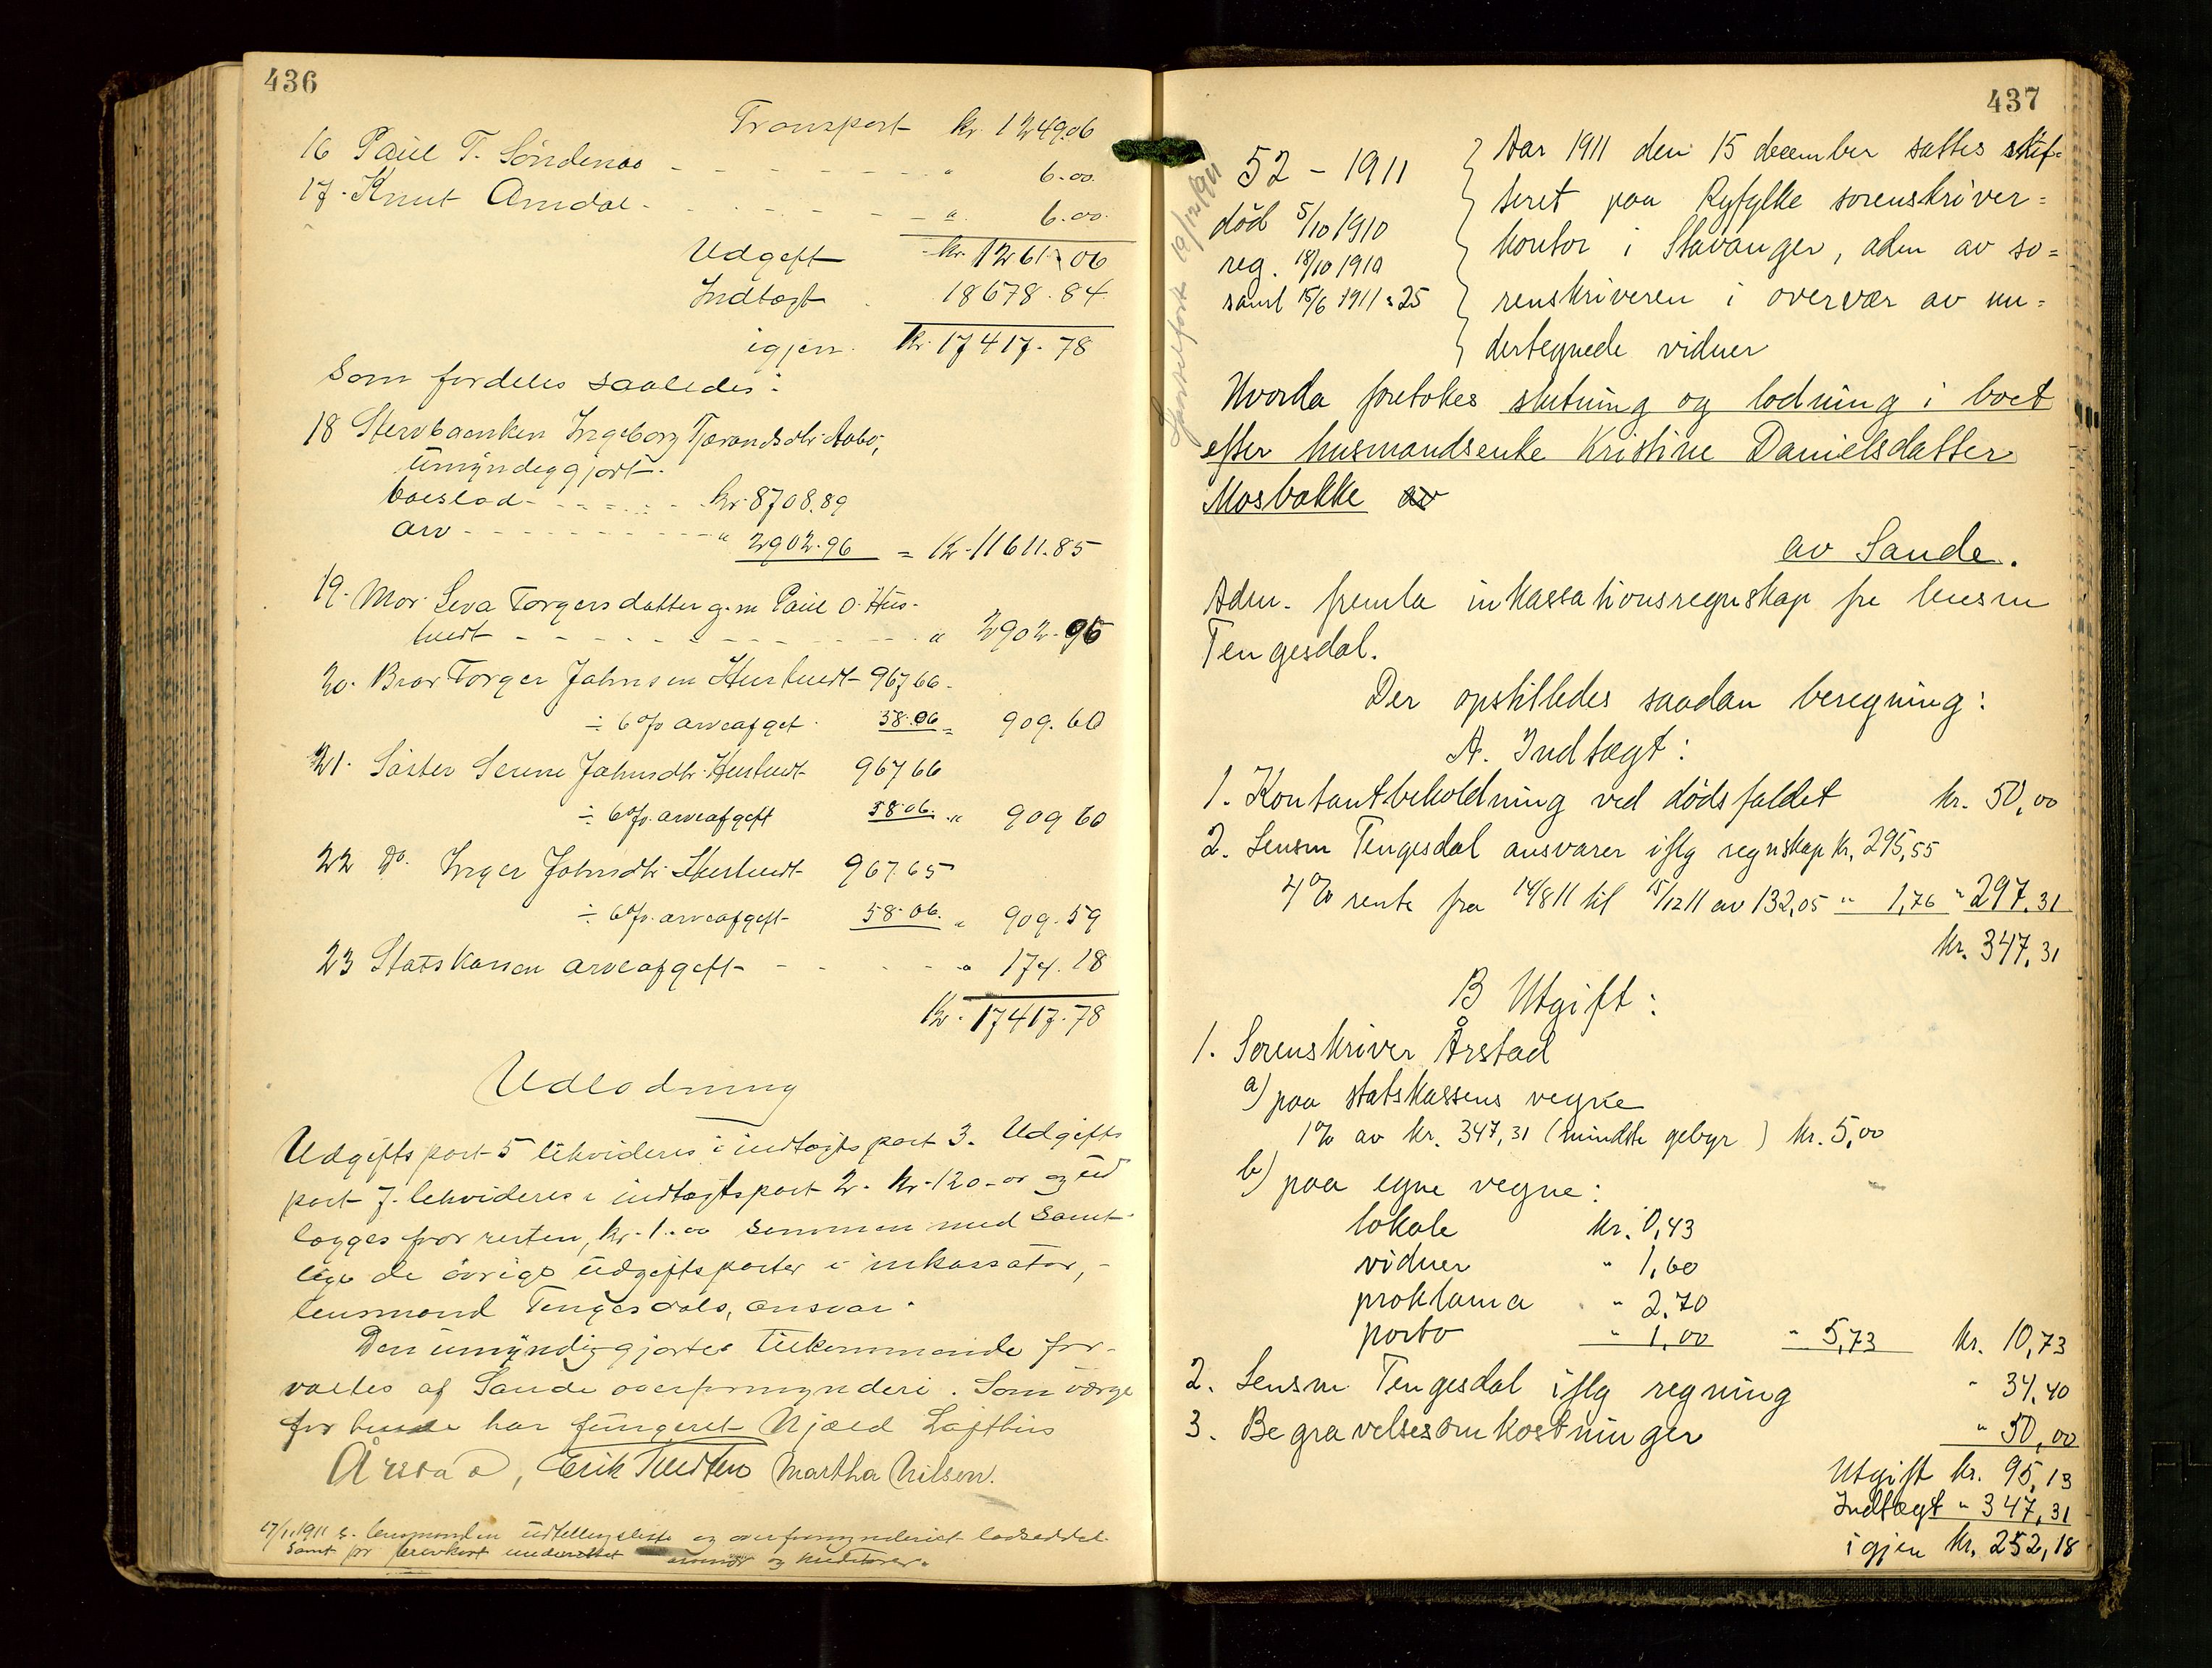 436
Transport kr. 1249.06
16 Paul T. Söndenaa - - - - - - - - " 6.00
17. Knut Amdal - - - - - - - " 6.00.
Udgift kr. 1261.06
Indtægt 18678.84
igjen. kr. 17417.78
Som fordeles saaledes:
18 Stervboenken Ingeborg Tjerandsdtr. Aabö,
umyndiggjort.
boeslod - - - - - kr. 8708.89
arv - - - - - - - - - " 2902.96 = kr. 11611.85
19. Mor Seva Torgersdatter g. m Paul O. Hus-
tveit - - - - - - - - - - - " 2902.96
20. Bror Torger Johnsen Hustveit 967 66.
÷ 6% arveafget. 58.06 = 909.60
21. Söster Serine Johnsdtr. Hustveit 967 66
÷ 6% arveafgeft 58.06. " 909 60
22 Do. Inger Johnsdtr. Hustveit 967.65
÷ 6% arveafgeft 58.06. " 909.59
23 Statskassen arveafgeft - - - - - " 174.18
Kr. 17417.78
Udlodning
Udgiftspost 5 likvideres i indtægtspost 3. Udgifts
post 7. likvideres i indtægtspost 2. kr. 120.00 og ud
lægges for resten, kr. 1.00 sammen med samt-
lige de övrige udgiftsposter i inkassator,
lensmand Tengesdals, ansvar.
Den umyndiggjortes tilkommende for-
valtes af Sande overformynderi. Som værge
for hende har fungeret Njæld Lofthus
Årstad, Erik Tveiten Martha Nilsen.
27/1.1911 s. lensmanden udtellingsliste og overformynderiet lodseddel.
samt pr brevkort underrettet arvinger og kreditorer.
437
Sportelført 19/12/911
52 - 1911
död 5/10 1910
reg. 18/10 1910
saml 15/6 1911 : 25
Aar 1911 den 15 december sattes skif-
teret paa Ryfylke sorenskriver=
kontor i Stavanger, adm av so=
renskriveren i overvær av un=
dertegnede vidner
Hvorda foretokes slutning og lodning i boet
efter husmandsenke Kristine Danielsdatter
Mosbakke av
av Sande.
Adm. fremla inkassationsregnskap fra lensm
Tengesdal.
Der opstilledes saadan beregning:
A. Indtægt:
1. Kontantbeholdning ved dödsfaldet kr. 50,00
2. Lensm Tengesdal ansvarer iflg regnskap kr. 295,55
4% rente fra 14/8 11 til 15/12 11 av 132,05 " 1,76 " 297,31
kr. 347,31
B Utgift:
1. Sorenskriver Årstad
a) paa statskassens vegne
1% av kr. 347,31 (mindste gebyr) kr. 5,00
b) paa egne vegne:
lokale kr. 0,43
vidner " 1,60
proklama " 2,70
porto " 1,00 " 5,73 kr. 10,73
2. Lensm Tengesdal iflg regning " 34,40
3. Begravelsesomkostninger " 50,00
Utgift kr. 95,13
Indtægt " 347,31
igjen kr. 252,18